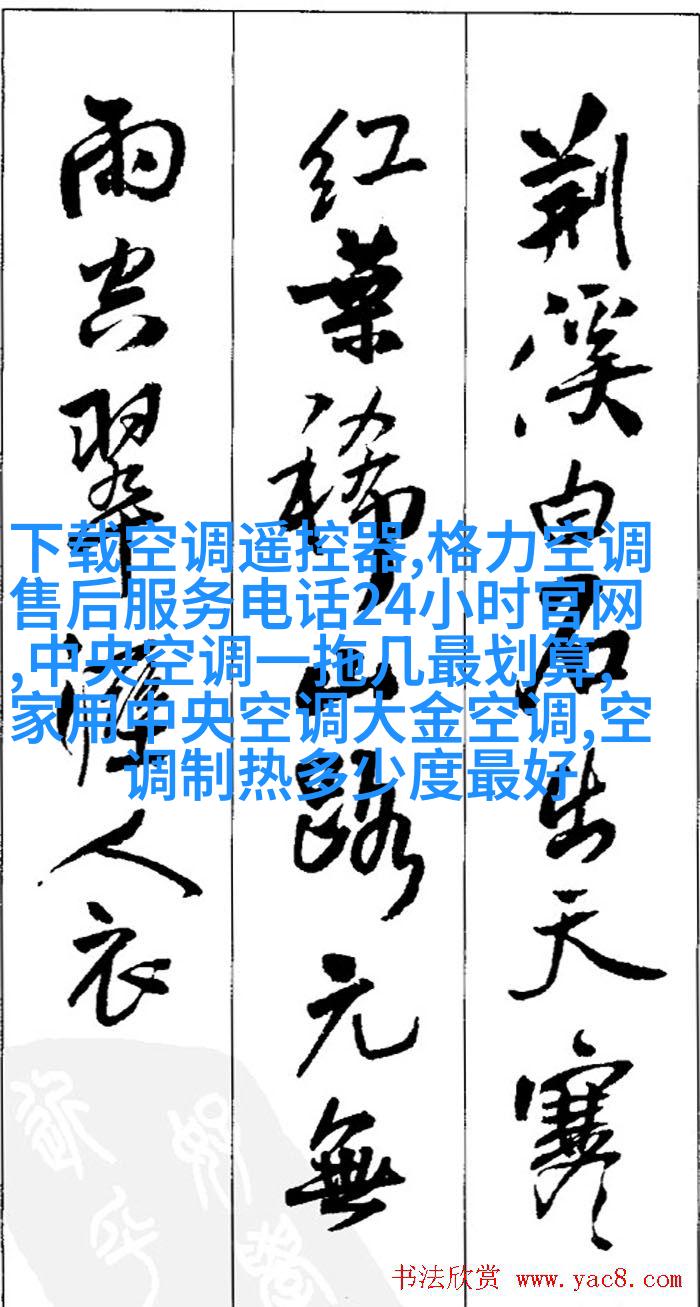 荆溪白石出天寒
红葉稀山路元無
雨空翠濕人衣
下载空调遥控器,格力空调
售后服务电话24小时官网
,中央空调一拖几最划算,
家用中央空调大金空调,空
调制热多少度最好
书法欣赏 www.yac8.com